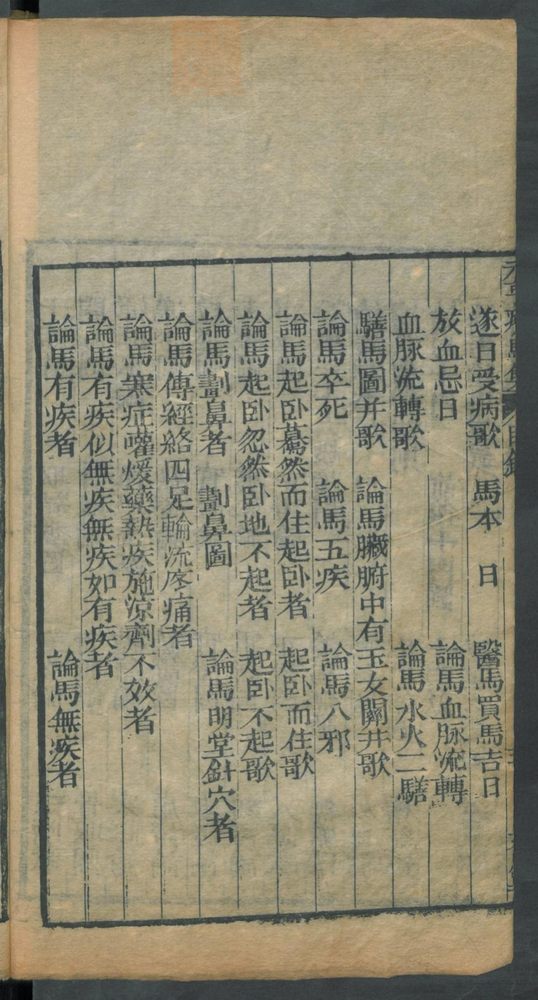 遂日受病歌 馬本 日 醫馬買馬吉日
放血忌日 論馬血脉流轉
血脉流轉歌 論馬水火二騸
騸馬圖并歌 論馬臟腑中有玉女關并歌
論馬卒死 論馬五疾 論馬八邪
論馬起卧驀然而住起卧者 起卧而住歌
論馬起卧忽然卧地不起者 起卧不起歌
論馬劃鼻者 劃鼻圖 論馬明堂針穴者
論馬傳經絡四足輪流疼痛者
論馬寒症嚾煖藥熱疾施涼劑不效者
論馬有疾似無疾無疾如有疾者
論馬有疾者 論馬無疾者